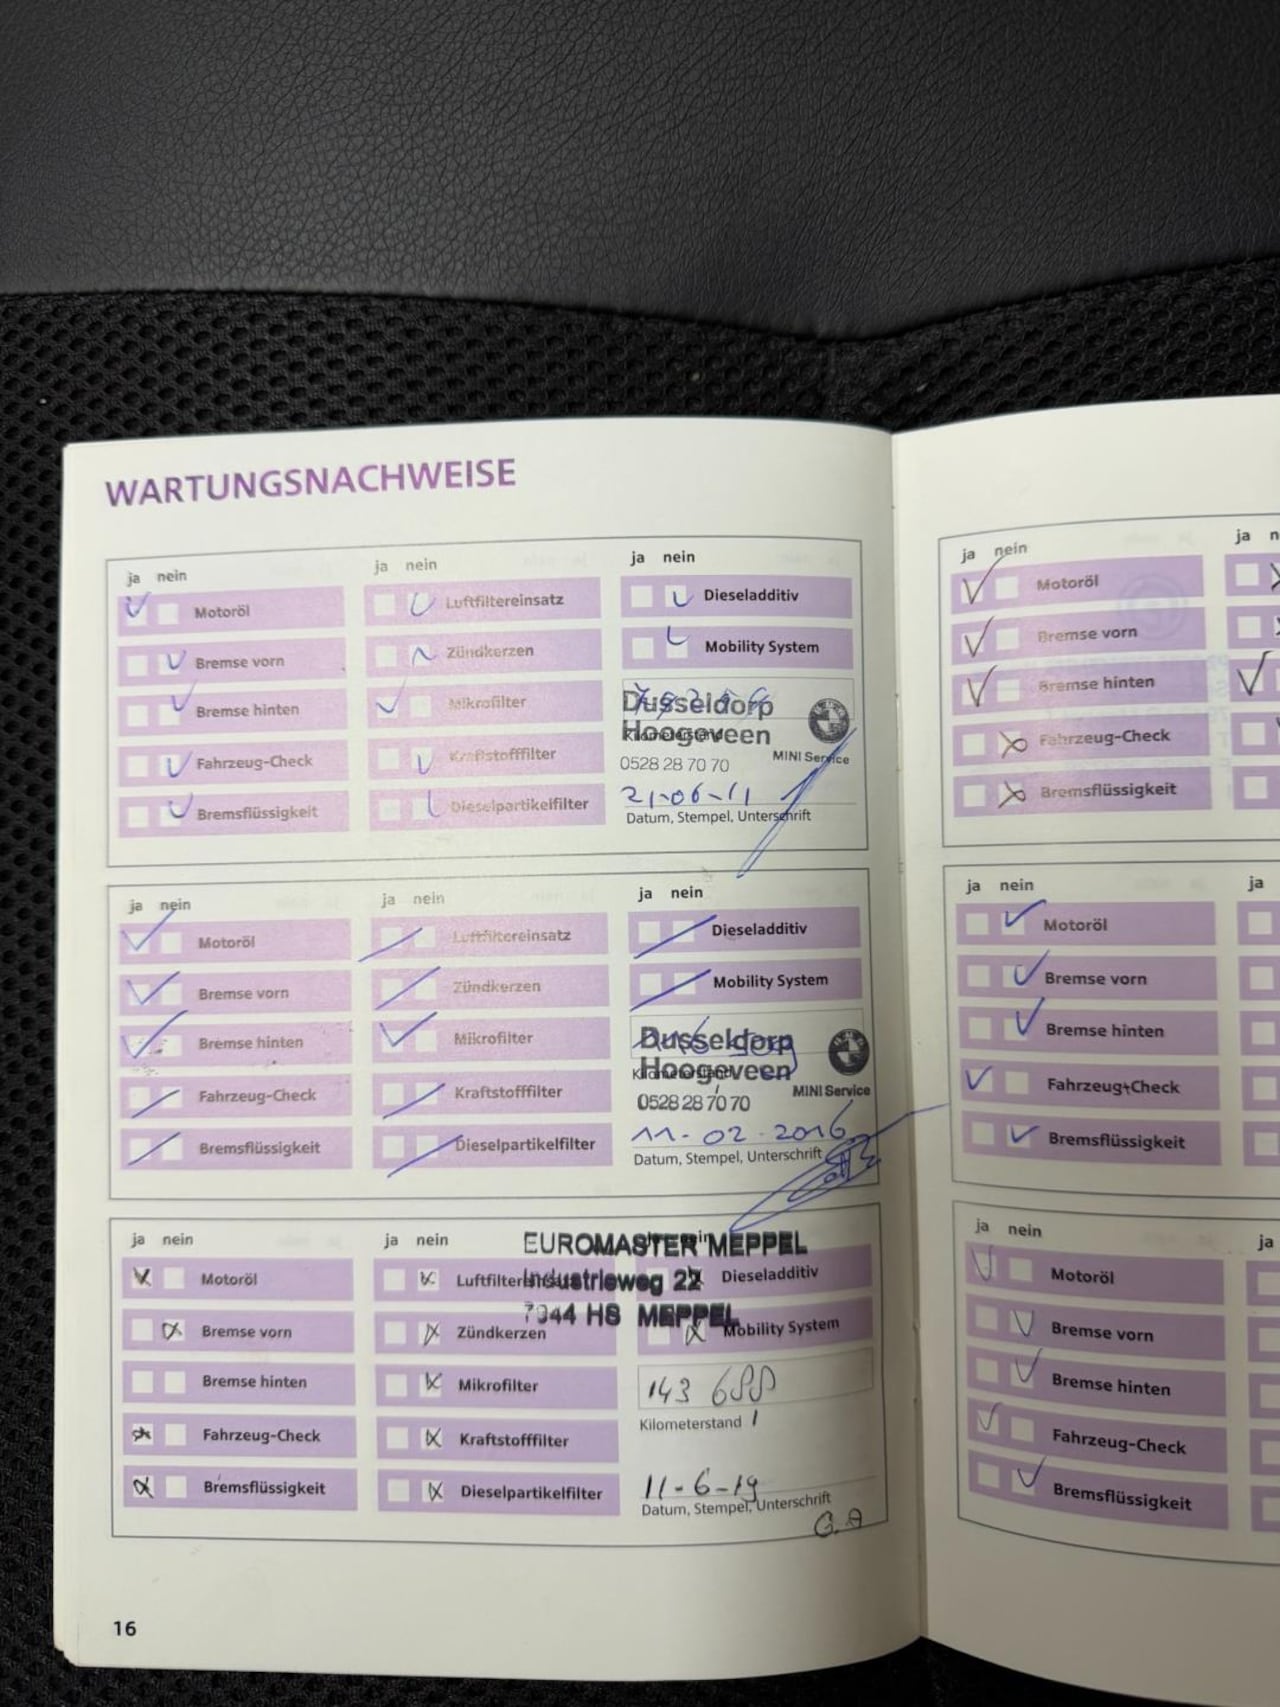 WARTUNGSNACHWEISE
ja nein
Motoröl
Bremse vorn
Bremse hinten
Fahrzeug-Check
Bremsflüssigkeit
ja nein
Luftfiltereinsatz
Zündkerzen
Mikrofilter
Kraftstofffilter
Dieselpartikelfilter
ja nein
Dieseladditiv
Mobility System
Dusseldorp
Hoogeveen
Kilometerstand
0528 28 70 70
MINI Service
21-06-11
Datum, Stempel, Unterschrift
ja nein
Motoröl
Bremse vorn
Bremse hinten
Fahrzeug-Check
Bremsflüssigkeit
ja nein
Luftfiltereinsatz
Zündkerzen
Mikrofilter
Kraftstofffilter
Dieselpartikelfilter
ja nein
Dieseladditiv
Mobility System
Dusseldorp
Hoogeveen
Kilometerstand
0528 28 70 70
MINI Service
11-02-2016
Datum, Stempel, Unterschrift
ja nein
Motoröl
Bremse vorn
Bremse hinten
Fahrzeug-Check
Bremsflüssigkeit
ja nein
Luftfiltereinsatz
Zündkerzen
Mikrofilter
Kraftstofffilter
Dieselpartikelfilter
nein
EUROMASTER MEPPEL
Industrieweg 22
7944 HS MEPPEL
Dieseladditiv
Mobility System
143 688
Kilometerstand
11-6-19
Datum, Stempel, Unterschrift
G.A
16
ja nein
Motoröl
Bremse vorn
Bremse hinten
Fahrzeug-Check
Bremsflüssigkeit
ja n
ja nein
Motoröl
Bremse vorn
Bremse hinten
Fahrzeug-Check
Bremsflüssigkeit
ja
ja nein
Motoröl
Bremse vorn
Bremse hinten
Fahrzeug-Check
Bremsflüssigkeit
ja